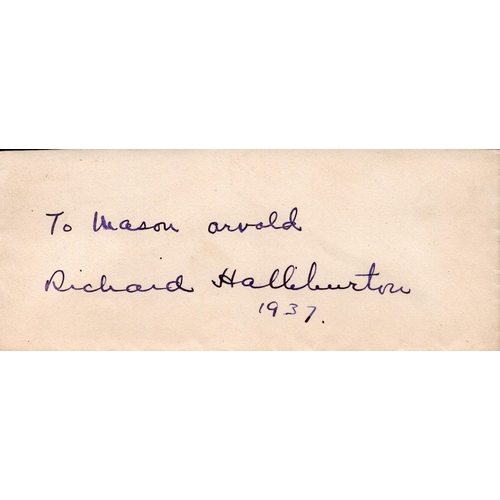 To Mason arvold
Richard Halliburton
1937.